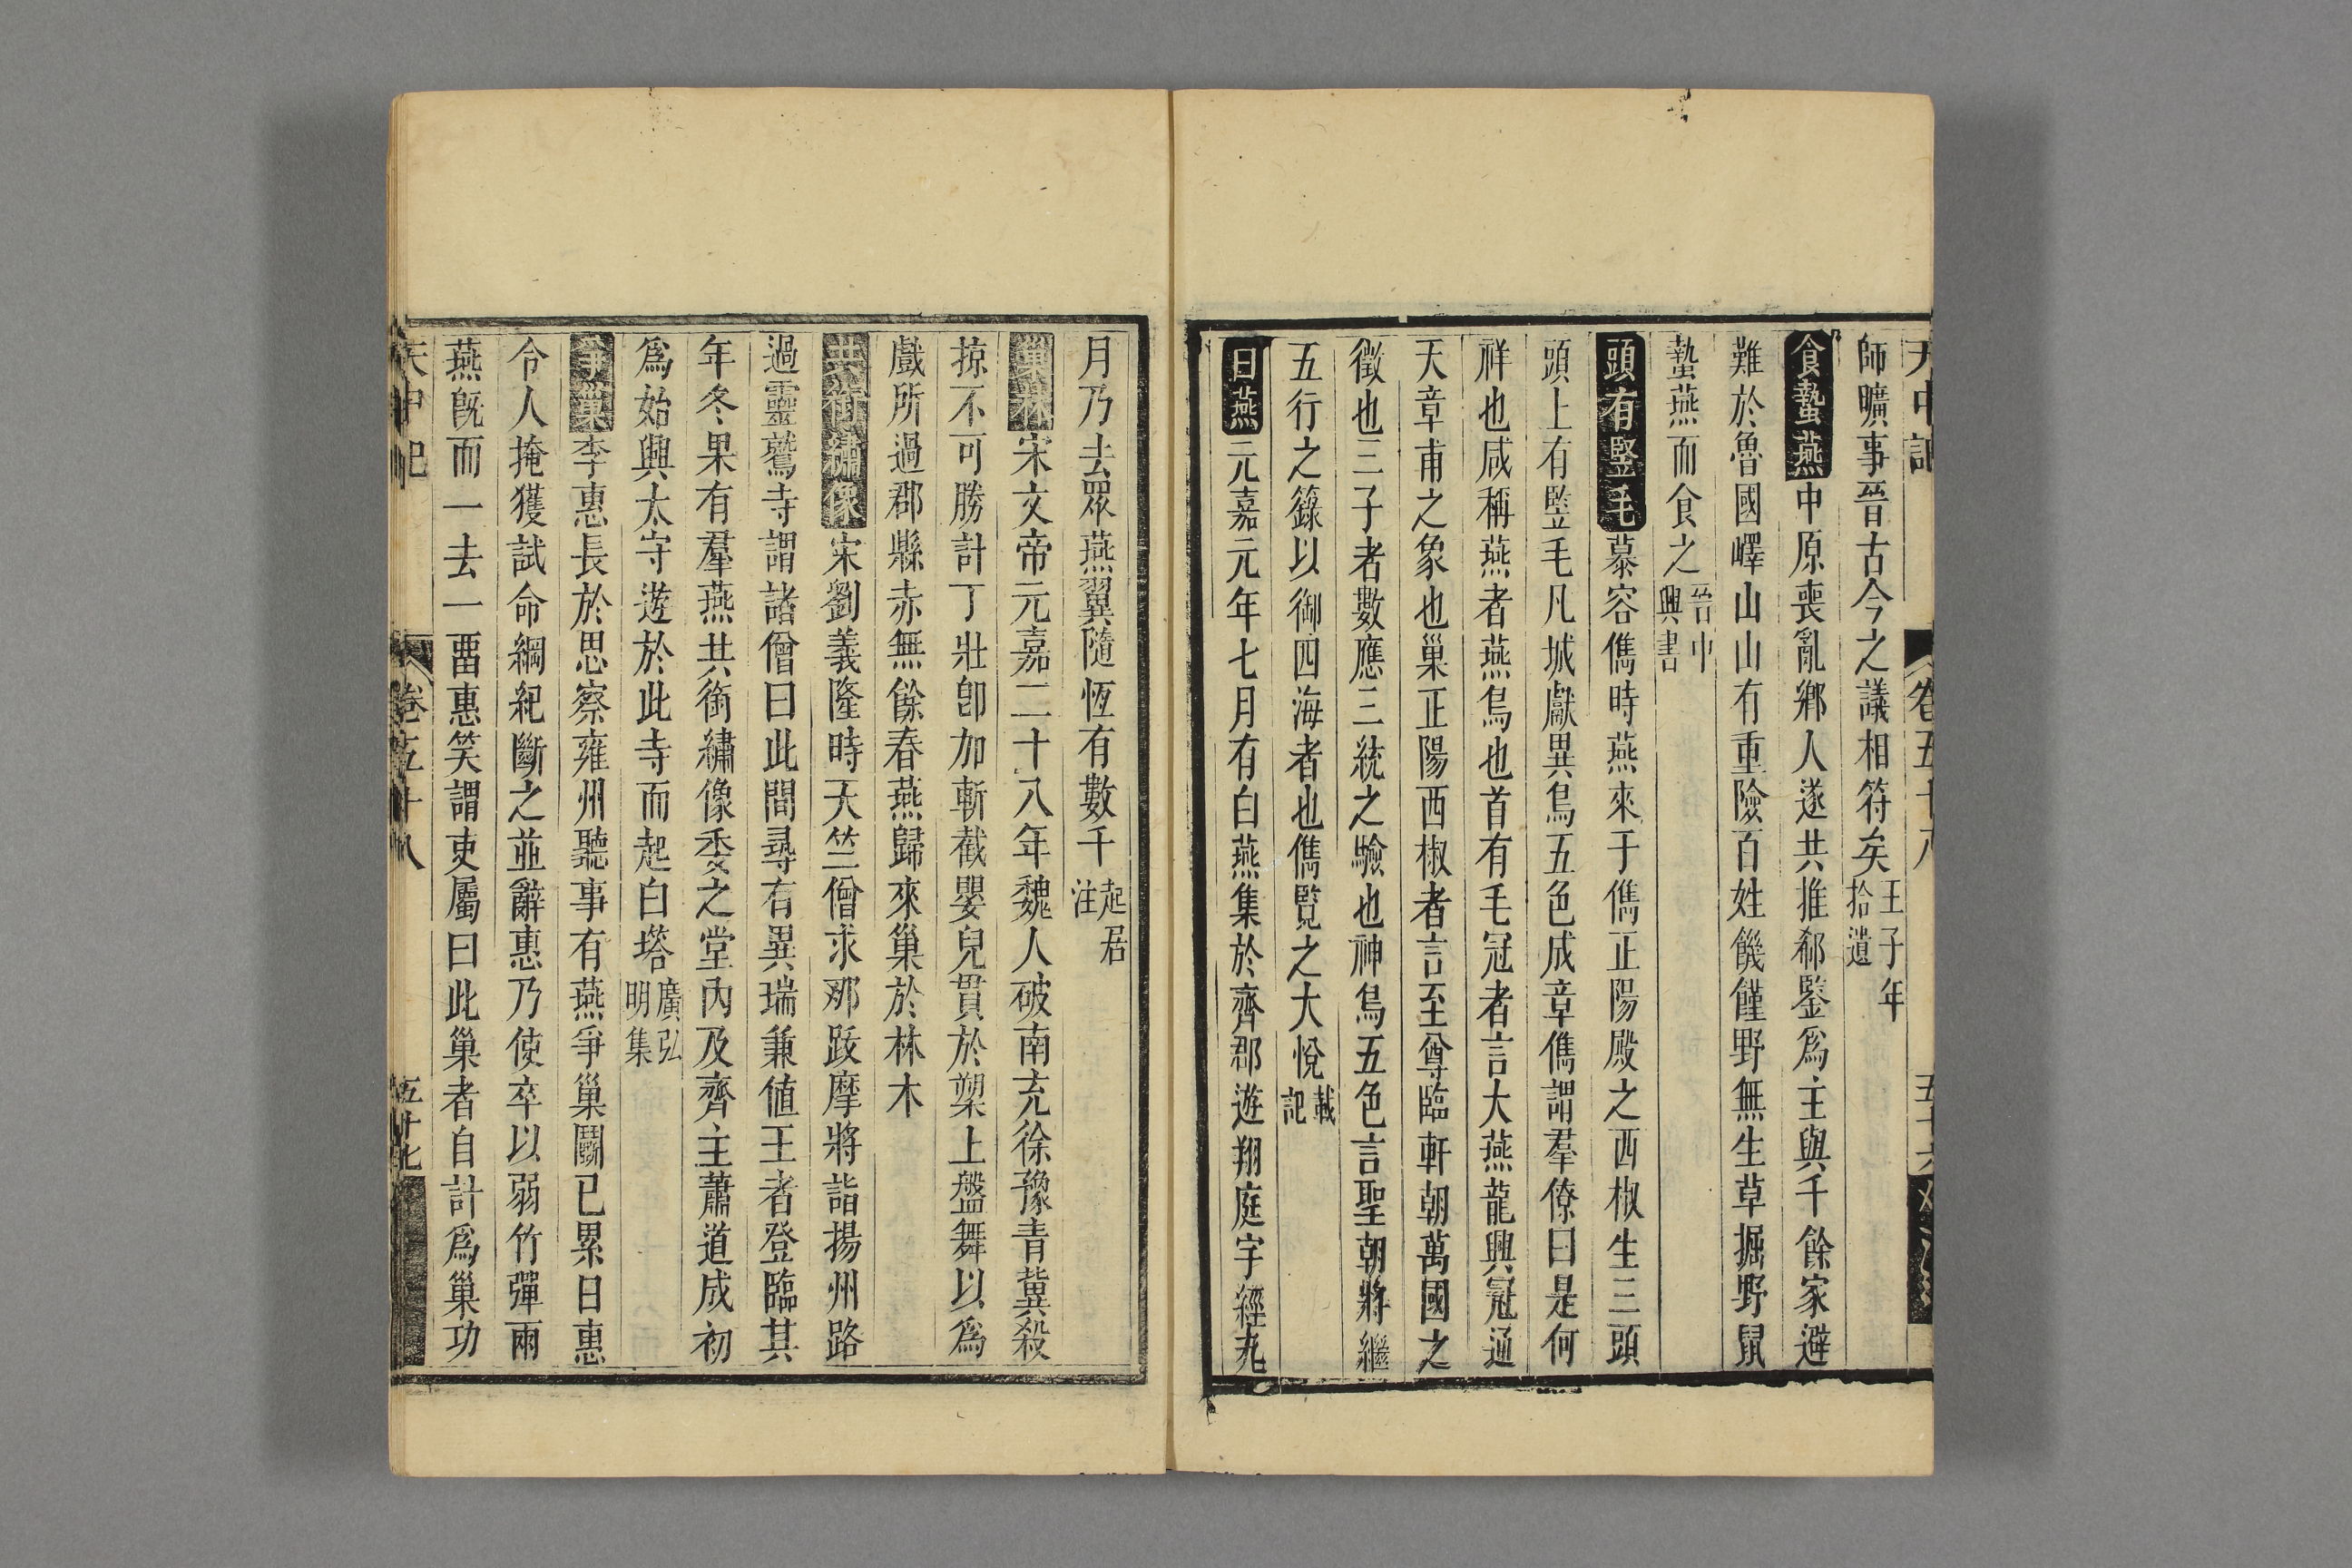 天中記 卷五十八 五十六
師曠事晉古今之議相符矣王子年拾遺
食蟄燕中原喪亂鄉人遂共推郗鑒爲主與千餘家避
難於魯國嶧山山有重險百姓饑饉野無生草掘野鼠
蟄燕而食之晉中興書
頭有豎毛慕容儁時燕來于儁正陽殿之西椒生三頭
頭上有豎毛凡城獻異鳥五色成章儁謂羣僚曰是何
祥也咸稱燕者燕鳥也首有毛冠者言大燕龍興冠通
天章甫之象也巢正陽西椒者言至尊臨軒朝萬國之
徵也三子者數應三統之驗也神鳥五色言聖朝將繼
五行之籙以御四海者也儁覽之大悅載記
白燕元嘉元年七月有白燕集於齊郡遊翔庭宇經九
月乃去眾燕翼隨恆有數千起居注
巢林宋文帝元嘉二十八年魏人破南兗徐豫青冀殺
掠不可勝計丁壯卽加斬截嬰兒貫於槊上盤舞以爲
戲所過郡縣赤無餘春燕歸來巢於林木
共銜繡像宋劉義隆時天竺僧求那跋摩將詣揚州路
過靈鷲寺謂諸僧曰此間尋有異瑞兼値王者登臨其
年冬果有羣燕共銜繡像委之堂內及齊主蕭道成初
爲始興太守遊於此寺而起白塔廣弘明集
爭巢李惠長於思察雍州聽事有燕爭巢鬬已累日惠
令人掩獲試命綱紀斷之並辭惠乃使卒以弱竹彈兩
燕旣而一去一畱惠笑謂吏屬曰此巢者自計爲巢功
天中記 卷五十八 五十七